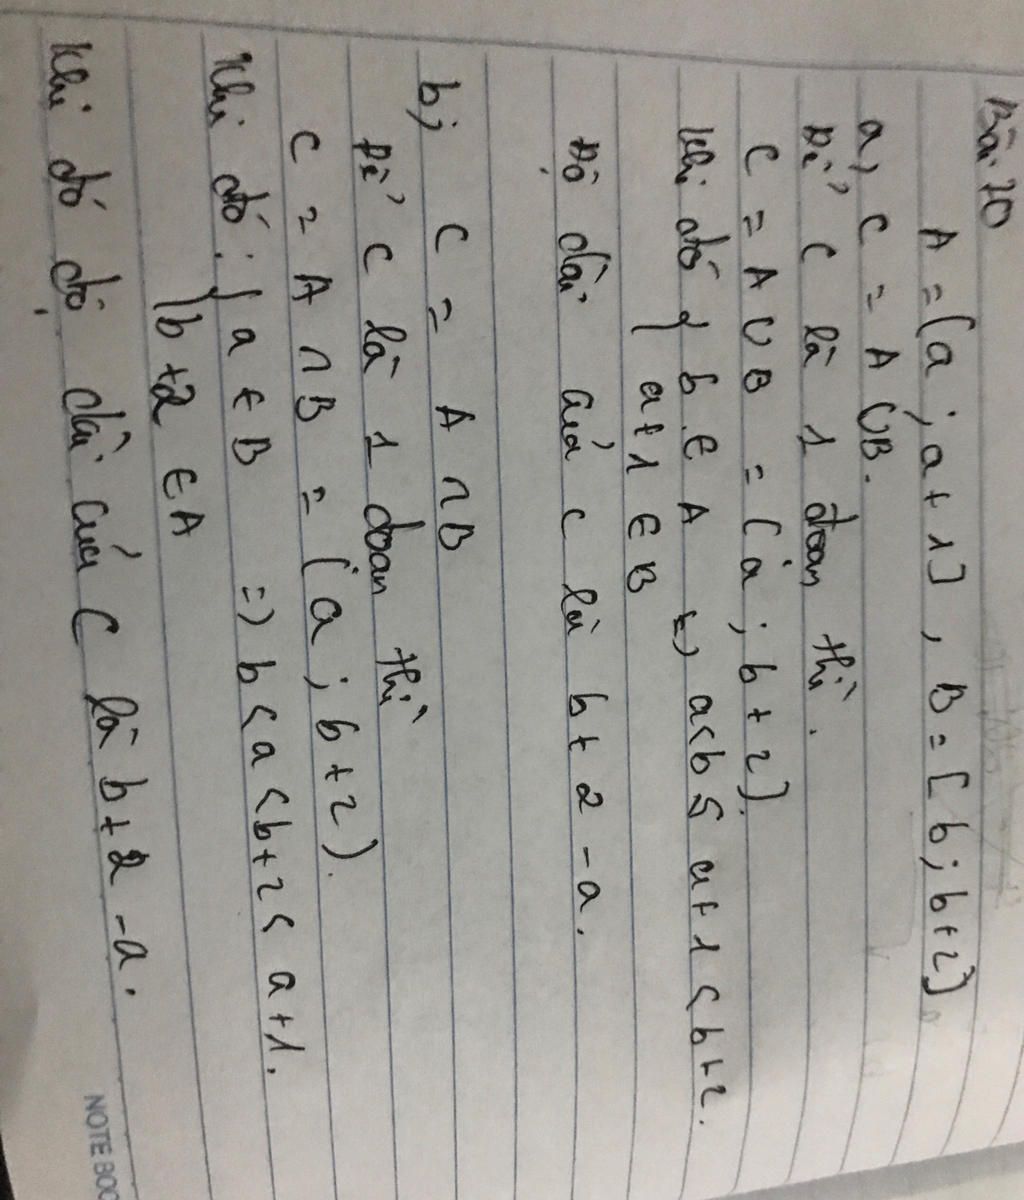 Bài 10
A = (a ; a + 1] , B = [b ; b + 2)
a, C = A ∪ B.
Để C là 1 đoạn thì.
C = A ∪ B = (a ; b + 2).
Khi đó { b ∈ A => a < b ≤ a + 1 < b + 2.
a + 1 ∈ B
Độ dài của C là b + 2 - a.
b; C = A ∩ B
Để C là 1 đoan thì
C = A ∩ B = (a ; b + 2).
Khi đó: { a ∈ B => b < a < b + 2 < a + 1.
b + 2 ∈ A
Khi đó độ dài của C là b + 2 - a.
NOTE BOO